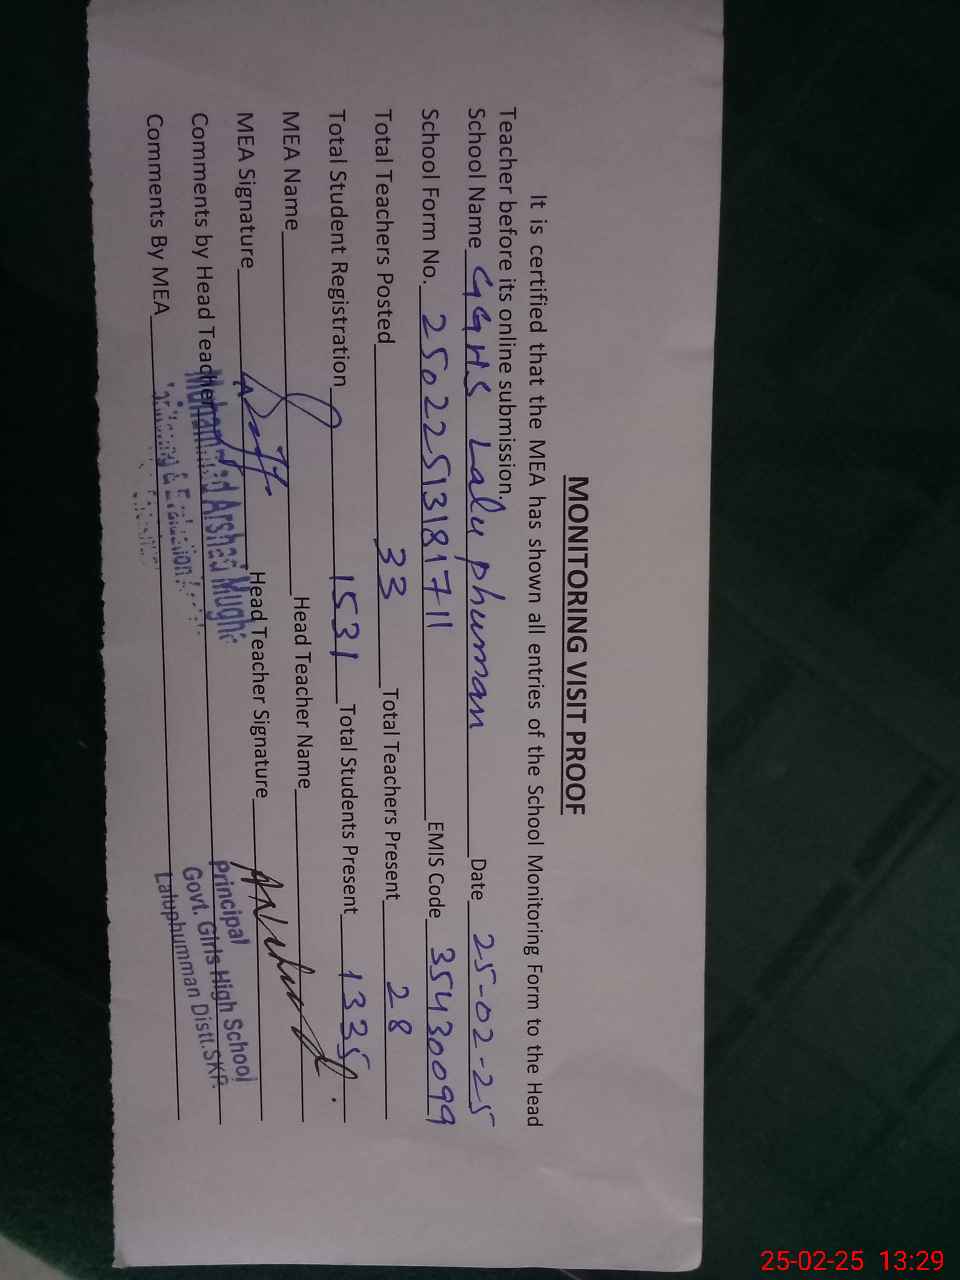 MONITORING VISIT PROOF
It is certified that the MEA has shown all entries of the School Monitoring Form to the Head
Teacher before its online submission.
School Name GGHS Lalu phuman Date 25-02-25
School Form No. 25022513181711 EMIS Code 35430099
Total Teachers Posted 33 Total Teachers Present 28
Total Student Registration 1531 Total Students Present 1335
MEA Name Head Teacher Name
MEA Signature Head Teacher Signature
Comments by Head Teacher
Comments By MEA
Muhammad Arshad Mughal
Monitoring & Evaluation
Principal
Govt. Girls High School
Laluphumman Distt.SKP.
25-02-25 13:29